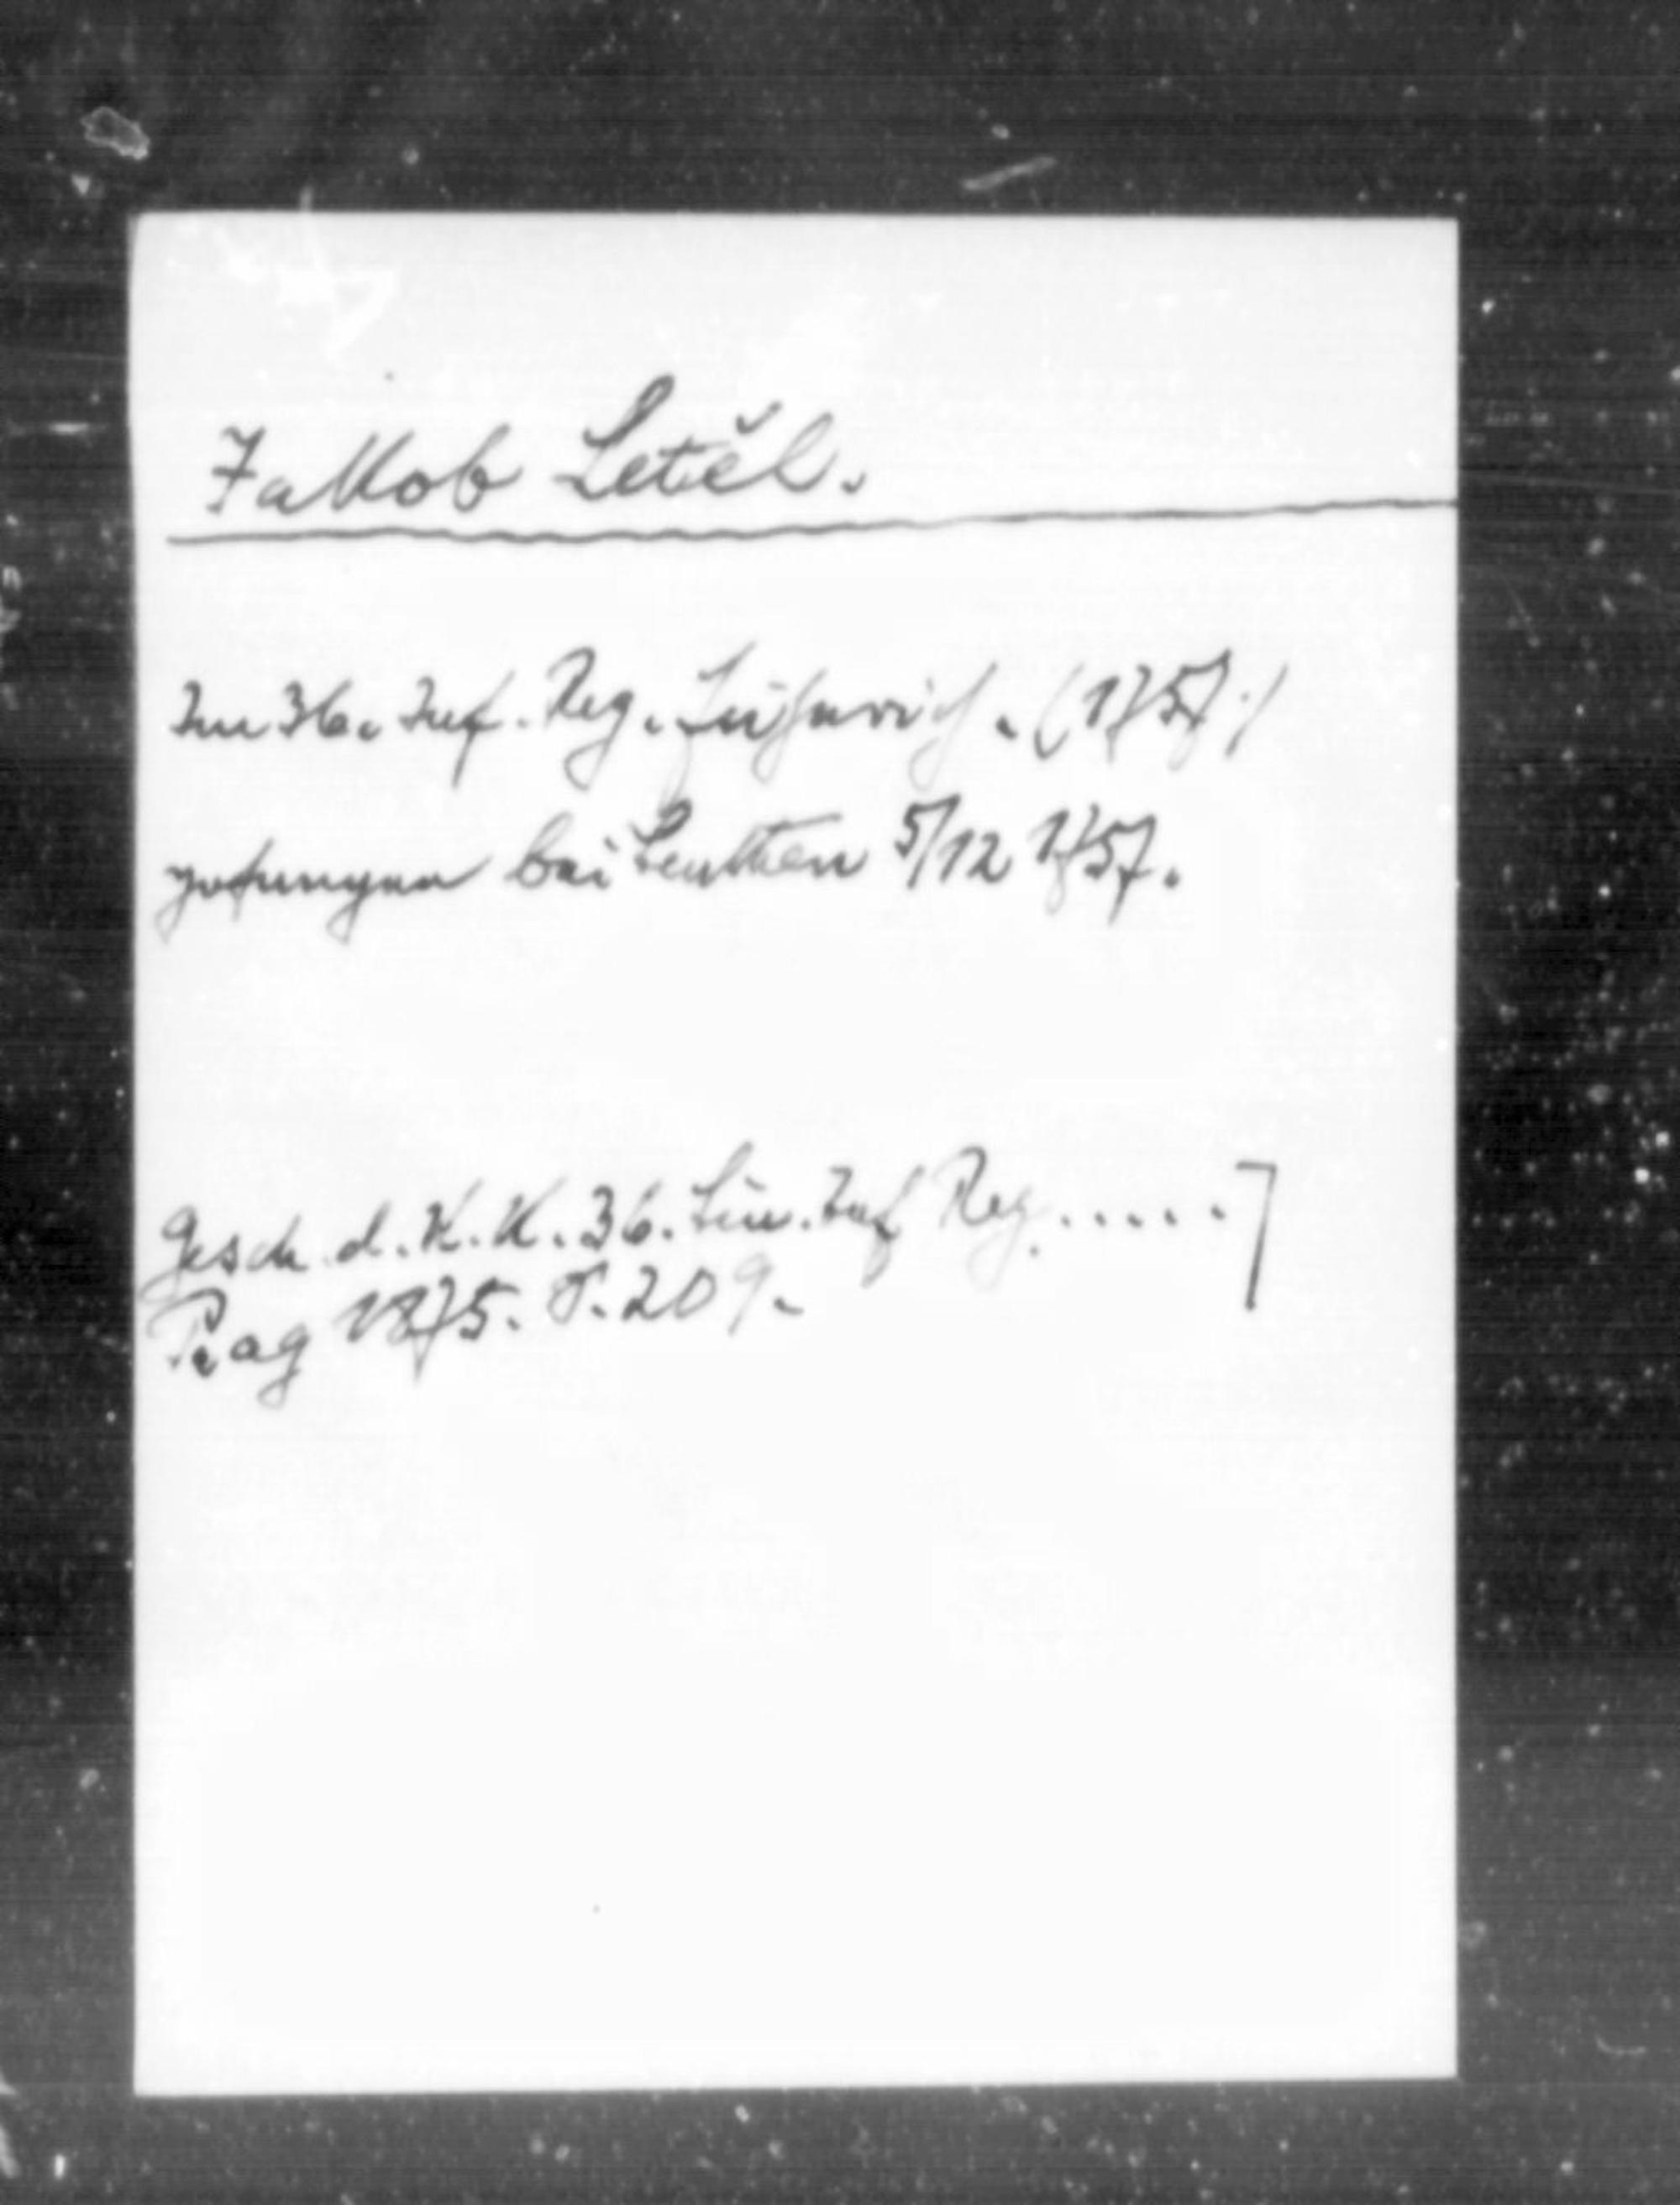 Jakob Letěl.
Im 36. Inf. Reg. Fähnrich. (1757.)
gefangen bei Leuthen 5/12 1757.
Gesch d. K. K. 36. Lin. Inf Reg.....]
Prag 1875. S. 209.